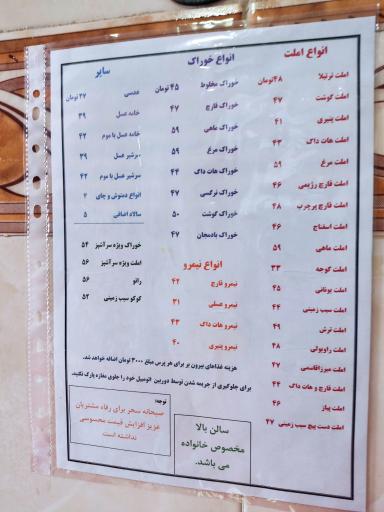 انواع املت
املت ترتیلا ۴۸تومان
املت گوشت ۴۷
املت پنیری ۴۱
املت هات داگ ۴۳
املت مرغ ۵۹
املت قارچ رژیمی ۴۶
املت قارچ پرچرب ۴۸
املت اسفناج ۴۶
املت ماهی ۵۹
املت گوجه ۳۳
املت یونانی ۴۵
املت سیب زمینی ۴۴
املت ترش ۴۹
املت راویولی ۴۸
املت میرزاقاسمی ۴۷
املت قارچ و هات داگ ۴۴
املت پیاز ۴۶
املت دست پیچ سیب زمینی ۴۷
انواع خوراک
خوراک مخلوط ۴۵ تومان
خوراک قارچ ۴۷
خوراک ماهی ۵۹
خوراک مرغ ۵۹
خوراک هات داگ ۴۴
خوراک نرگسی ۴۷
خوراک گوشت ۵۰
خوراک بادمجان ۴۷
انواع نیمرو
نیمرو قارچ ۴۲
نیمرو عسلی ۳۱
نیمرو هات داگ ۴۳
نیمرو پنیری ۴۰
سایر
عدسی ۲۷ تومان
خامه عسل ۳۹
خامه عسل با موم ۴۲
سرشیر عسل ۳۹
سرشیر عسل با موم ۴۲
انواع دمنوش و چای ۴
سالاد اضافی ۵
خوراک ویژه سرآشپز ۵۴
املت ویژه سرآشپز ۵۶
راتو ۵۶
کوکو سیب زمینی ۵۲
هزینه غذاهای بیرون بر برای هر پرس مبلغ ۳۰۰۰ تومان اضافه خواهد شد.
برای جلوگیری از جریمه شدن توسط دوربین اتومبیل خود را جلوی مغازه پارک نکنید.
سالن بالا
مخصوص خانواده
می باشد.
توجه:
صبحانه سحر برای رفاه مشتریان
عزیز افزایش قیمت محسوسی
نداشته است